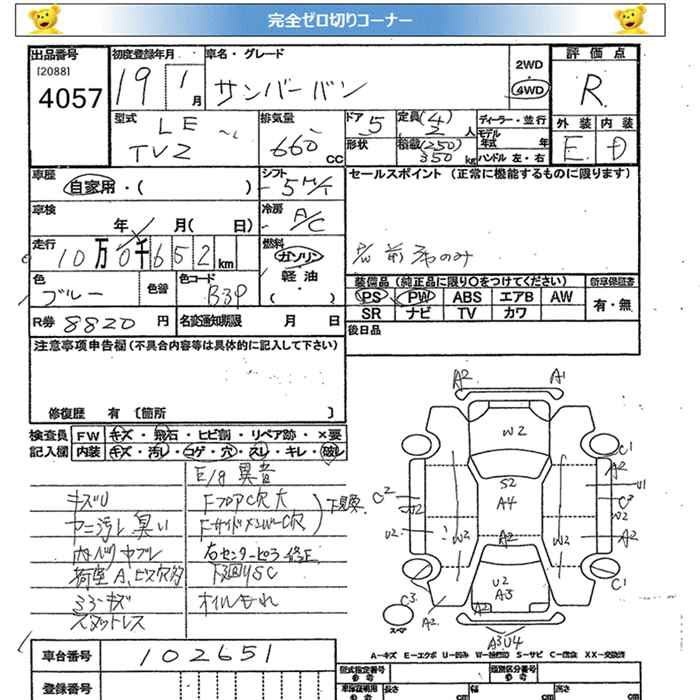 完全ゼロ切りコーナー
出品番号 初度登録年月 車名・グレード 評価点
[2088]
4057 19 1月 サンバーバン 2WD 4WD R
型式 LE-
TV2
排気量 660 CC
ドア 5 定員 (4) 2 人 ディーラー・並行
形状 積載 (250) 350 kg モデル年式 年 ハンドル 左・右
外装 内装
E D
車歴 自家用・( )
シフト 5M/T
セールスポイント (正常に機能するものに限ります)
車検 年 月( 日)
冷房 A/C
走行 10万0千652km
燃料 ガソリン
軽油
( )
前 のみ
色 ブルー 色替 色コード B3P
装備品 (純正品に限り〇をつけてください) 新車保証書
PS PW ABS エアB AW 有・無
SR ナビ TV カワ
R券 8820円 名変通知期限 月 日
後日品
注意事項申告欄 (不具合内容等は具体的に記入して下さい)
修復歴 有 〔箇所 〕
検査員 FW キズ・飛石・ヒビ割・リペア跡・×要
記入欄 内装 キズ・汚レ・コゲ・穴・スレ・キレ・破レ
E/g 異音
キズU FフロアC穴大
ヤニ汚レ臭い FサイドメンバーC穴 下見要
内ハリヤブレ 右センターピラー修正
荷室A、ビス穴多 下廻りSC
ミラーキズ オイルもれ
スヌットレス
A2 A1
W2
S2
A4
A2
U2
A3
C1
A2
U1
C2
W2
A2
C1
C2
U2
W2
W2
C3
スペア
A2
A2
A3U4
A-キズ E-エクボ U-凹み W-補修跡 S-サビ C-腐食 XX-交換済
車台番号 102651
型式指定番号 参考 類別区分番号 参考
登録番号 車庫証明用 参考 長さ cm 幅 cm 高さ cm